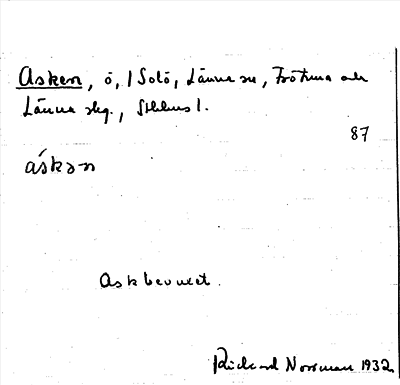 Asken, ö, / Solö, Länna sn, Frötuna och
Länna skg., Sthlms l.
87
áskən
Askbevuxet.
Rickard Norrman 1932